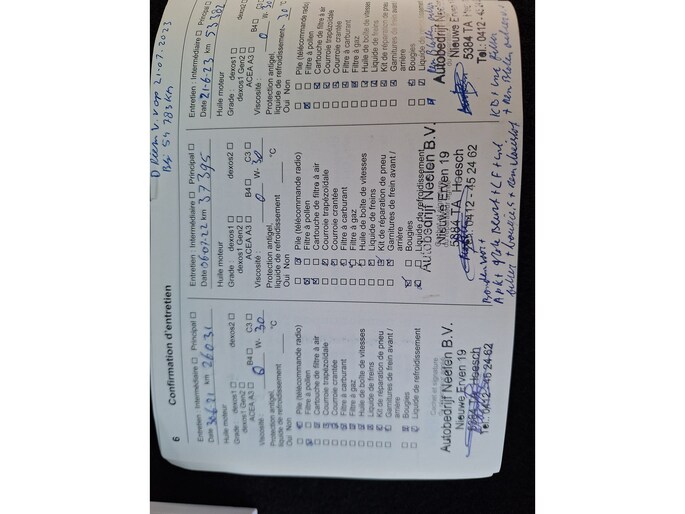 6
Confirmation d'entretien
Entretien : Intermédiaire Principal
Date 30.6.21 km 26031
Huile moteur
Grade : dexos1 dexos2
dexos1 Gen2
ACEA A3 B4 C3
Viscosité : 0 W- 30
Protection antigel,
liquide de refroidissement °C
Oui Non
Pile (télécommande radio)
Filtre à pollen
Cartouche de filtre à air
Courroie trapézoïdale
Courroie crantée
Filtre à carburant
Filtre à gaz
Huile de boîte de vitesses
Liquide de freins
Kit de réparation de pneu
Garnitures de frein avant /
arrière
Bougies
Liquide de refroidissement
Cachet et signature
Autobedrijf Neelen B.V.
Nieuwe Erven 19
5384 TA Heesch
Tel.: 0412-45 24 62
Entretien : Intermédiaire Principal
Date 06.07.22 km 37395
Huile moteur
Grade : dexos1 dexos2
dexos1 Gen2
ACEA A3 B4 C3
Viscosité : 0 W- 30
Protection antigel,
liquide de refroidissement °C
Oui Non
Pile (télécommande radio)
Filtre à pollen
Cartouche de filtre à air
Courroie trapézoïdale
Courroie crantée
Filtre à carburant
Filtre à gaz
Huile de boîte de vitesses
Liquide de freins
Kit de réparation de pneu
Garnitures de frein avant /
arrière
Bougies
Liquide de refroidissement
Autobedrijf Neelen B.V.
Nieuwe Erven 19
5384 TA Heesch
0412 - 45 24 62
21-07-2023
Bij 54783 km
Entretien : Intermédiaire Principal
Date 21-6-23 km 53382
Huile moteur
Grade : dexos1
dexos1 Gen2
ACEA A3 B4
Viscosité : 0 W- 30
Protection antigel,
liquide de refroidissement -30°C
Oui Non
Pile (télécommande radio)
Filtre à pollen
Cartouche de filtre à air
Courroie trapézoïdale
Courroie crantée
Filtre à carburant
Filtre à gaz
Huile de boîte de vitesses
Liquide de freins
Kit de réparation de pneu
Garnitures de frein avant /
arrière
Bougies
Autobedrijf
Nieuwe Erven
5384 TA
Tel.: 0412-4